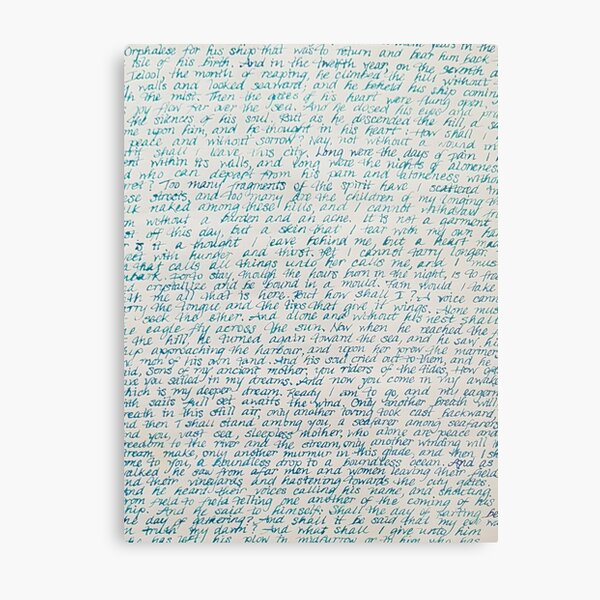 years in the
Orphalese for his ship that was to return and bear him back
Isle of his birth. And in the twelfth year, on the seventh d
Ielool, the month of reaping, he climbed the hill without
walls and looked seaward; and he beheld his ship coming
h the mist. Then the gates of his heart were flung open,
y flew far over the sea. And he closed his eyes and pra
the silences of his soul. But as he descended the hill, a s
me upon him, and he thought in his heart: How shall
peace and without sorrow? Nay, not without a wound
rit shall I leave this city. Long were the days of pain I
ent within its walls, and long were the nights of aloneness
d who can depart from his pain and aloneness without
gret? Too many fragments of the spirit have I scattered in
ese streets, and too many are the children of my longing
lk naked among these hills, and I cannot withdraw fr
m without a burden and an ache. It is not a garment
st off this day, but a skin that I tear with my own ha
r is it a thought I leave behind me, but a heart mad
eet with hunger and thirst. Yet I cannot tarry longer.
a that calls all things unto her calls me, and I mus
bark. For to stay, though the hours burn in the night, is to free
d crystallize and be bound in a mould. Fain would I take
th me all that is here. But how shall I? A voice cann
rry the tongue and the lips that give it wings. Alone must
seek the ether. And alone and without his nest shall
e eagle fly across the sun. Now when he reached the
the hill, he turned again toward the sea, and he saw hi
hip approaching the harbour, and upon her prow the mariners
e men of his own land. And his soul cried out to them, and he
id, Sons of my ancient mother, you riders of the tides, How oft
ave you sailed in my dreams. And now you come in my awake
hich is my deeper dream. Ready I am to go, and my eagern
ith sails full set awaits the wind. Only another breath will
reath in this still air, only another loving look cast backward,
nd then I shall stand among you, a seafarer among seafarers
nd you, vast sea, sleepless mother, who alone are peace and
reedom to the river and the stream, only another winding will th
tream make, only another murmur in this glade, and then I sh
ome to you, a boundless drop to a boundless ocean. And as
alked he saw from afar men and women leaving their field
nd their vineyards and hastening towards the city gates.
nd he heard their voices calling his name, and shouting
rom field to field telling one another of the coming of his
hip. And he said to himself: Shall the day of parting be
he day of gathering? And shall it be said that my eve wa
n truth my dawn? And what shall I give unto him
ho has left his plow in midfurrow, or to him who has